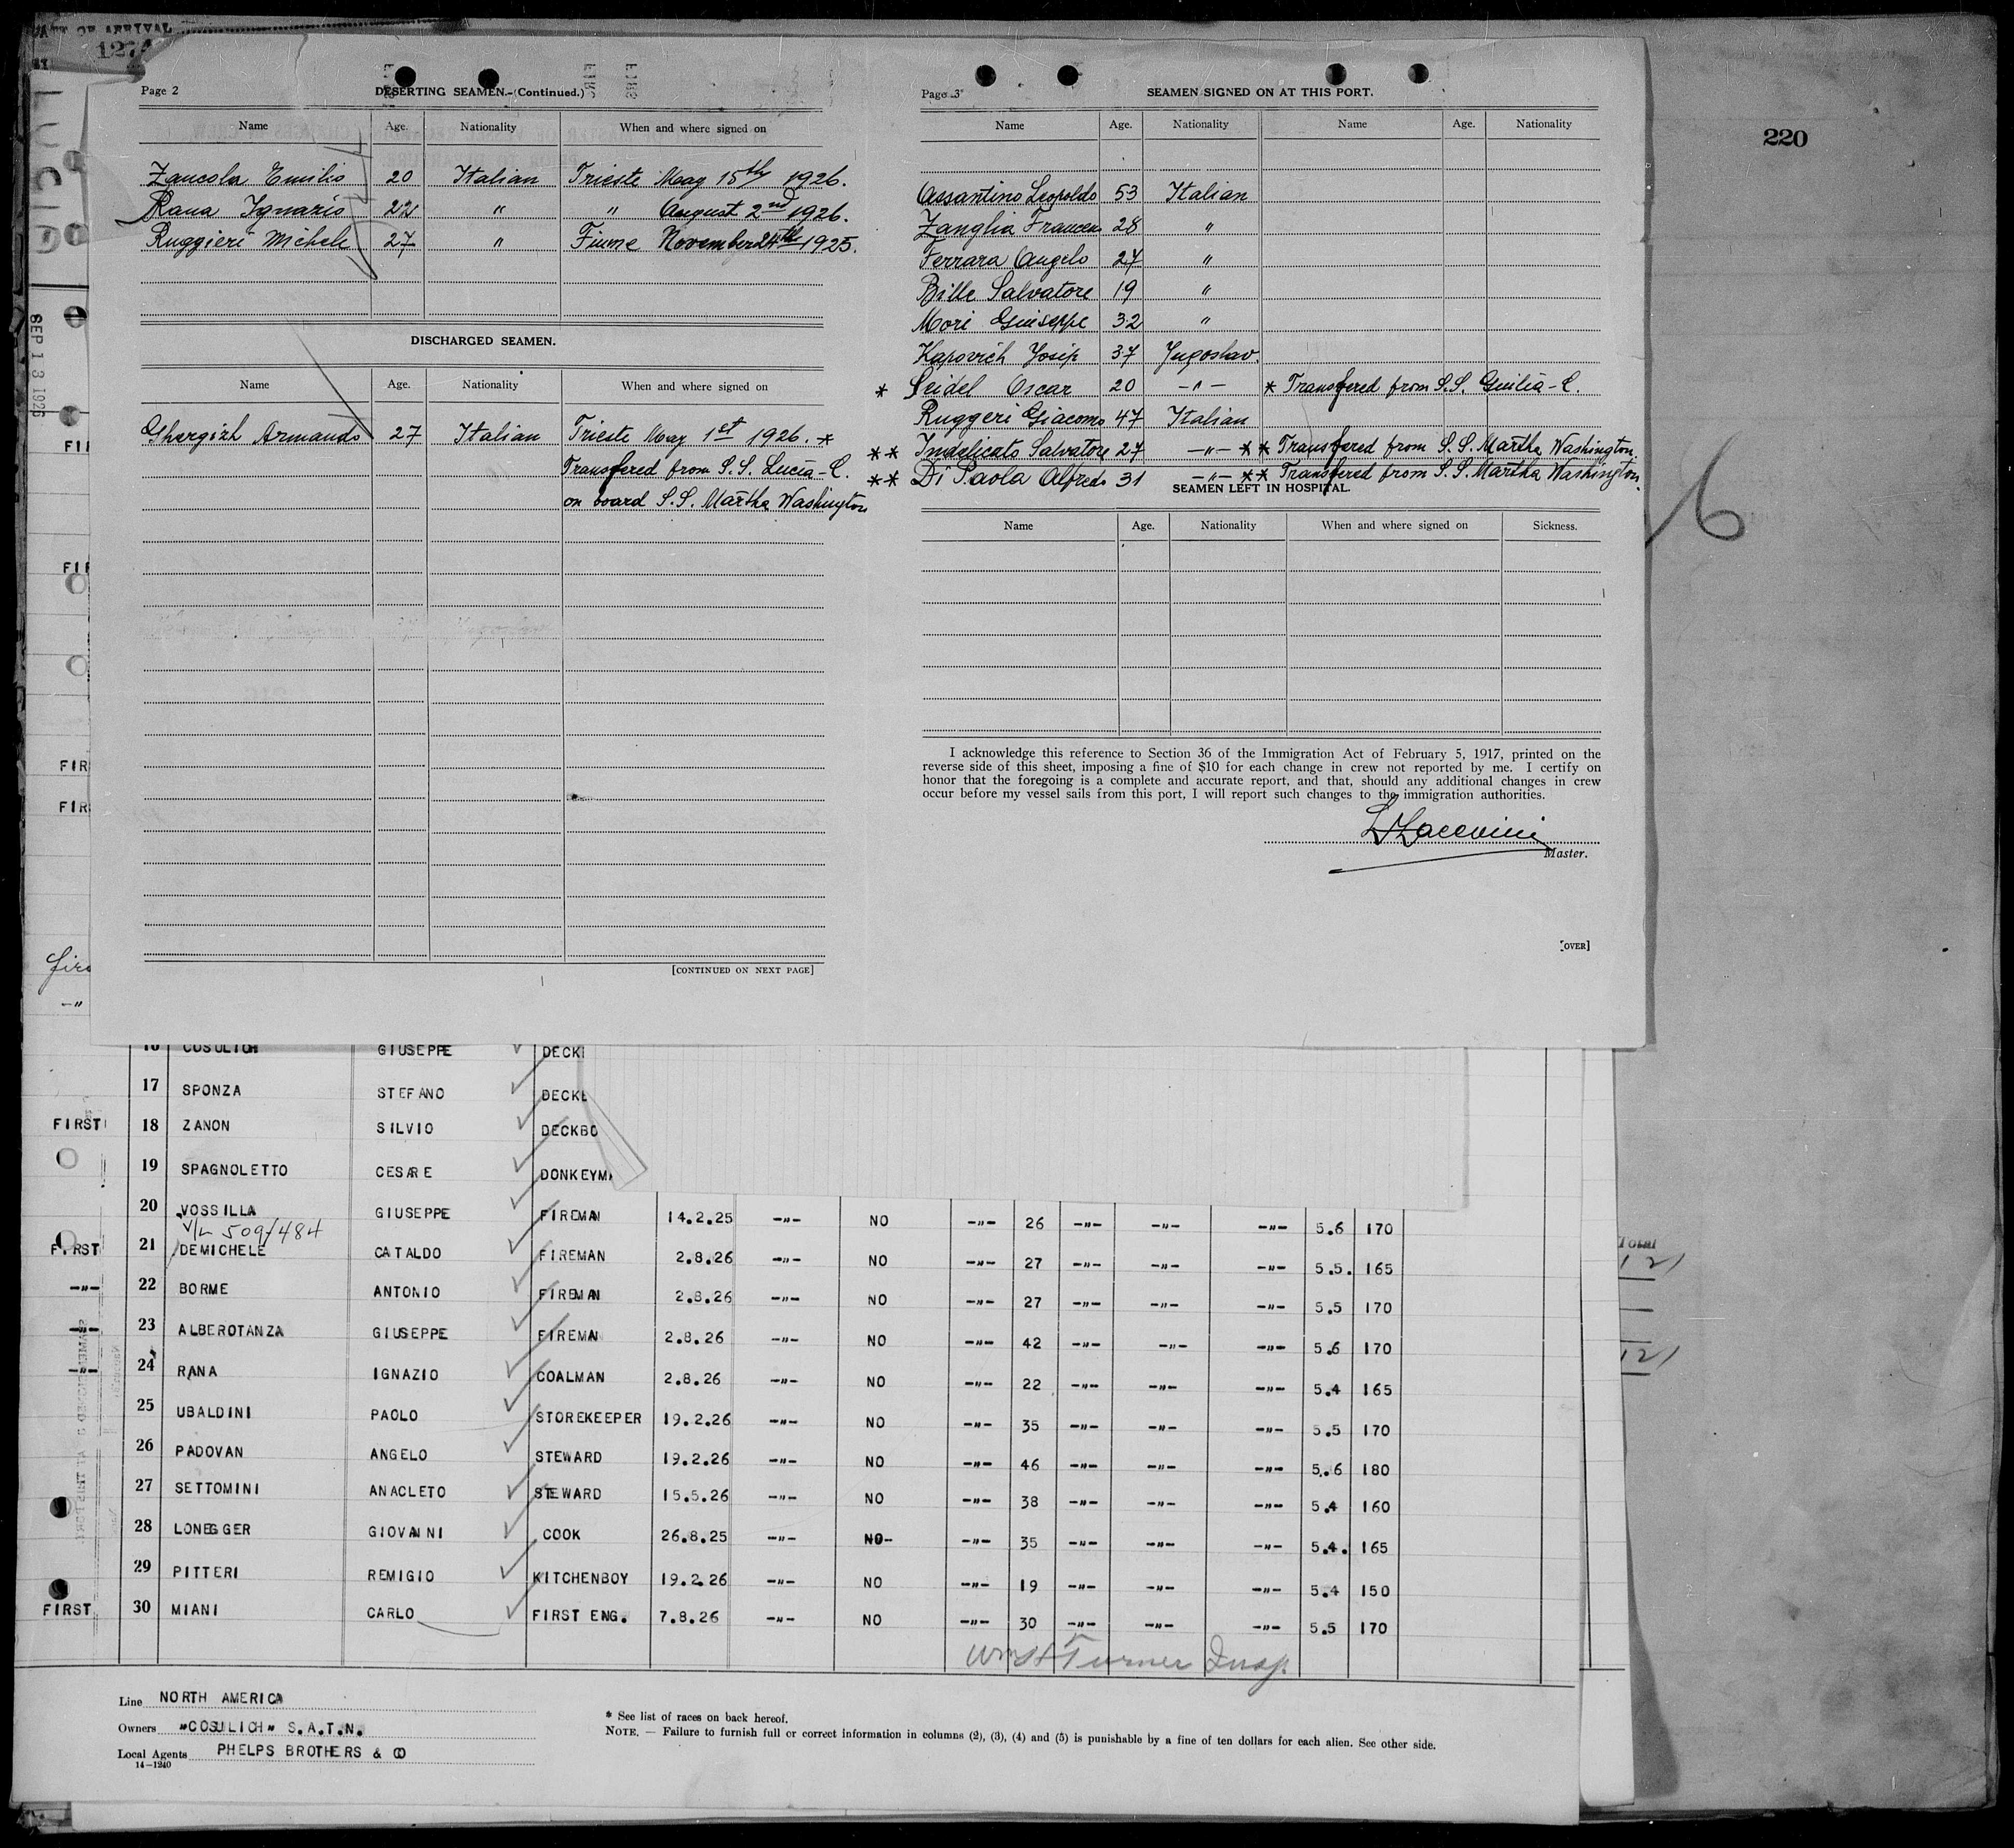 DATE OF ARRIVAL
127
220
LUCIA
SEP 13 1926
Page 2
DESERTING SEAMEN.-(Continued.)
Name Age. Nationality When and where signed on
Zancola Emilio 20 Italian Trieste May 15th 1926.
Rana Ignazio 22 " " August 2nd 1926.
Ruggieri Michele 27 " Fiume November 24th 1925.
DISCHARGED SEAMEN.
Name Age. Nationality When and where signed on
Ghergizh Armando 27 Italian Trieste May 1st 1926. *
Transfered from S.S. Lucia-C.
on board S.S. Martha Washington
[CONTINUED ON NEXT PAGE]
Page 3
SEAMEN SIGNED ON AT THIS PORT.
Name Age. Nationality Name Age. Nationality
Assantino Leopoldo 53 Italian
Zanglia Francesco 28 "
Ferrara Angelo 27 "
Bille Salvatore 19 "
Mori Giuseppe 32 "
Kapovich Josip 37 Jugoslav.
* Seidel Oscar 20 -"- * Transfered from S.S. Giulia-C.
Ruggeri Giacomo 47 Italian
** Indelicato Salvatore 27 -"- ** Transfered from S.S. Martha Washington.
** Di Paola Alfredo 31 -"- ** Transfered from S.S. Martha Washington.
SEAMEN LEFT IN HOSPITAL.
Name Age. Nationality When and where signed on Sickness.
I acknowledge this reference to Section 36 of the Immigration Act of February 5, 1917, printed on the
reverse side of this sheet, imposing a fine of $10 for each change in crew not reported by me. I certify on
honor that the foregoing is a complete and accurate report, and that, should any additional changes in crew
occur before my vessel sails from this port, I will report such changes to the immigration authorities.
Master.
[OVER]
6
FIR
FIR
16 COSULICH GIUSEPPE DECK
17 SPONZA STEFANO DECK
FIRST 18 ZANON SILVIO DECKBO
19 SPAGNOLETTO CESARE DONKEYM
20 VOSSILLA GIUSEPPE FIREMAN 14.2.25 -"- NO -"- 26 -"- -"- -"- 5.6 170
V/L 509/484
FIRST 21 DEMICHELE CATALDO FIREMAN 2.8.26 -"- NO -"- 27 -"- -"- -"- 5.5. 165
-"- 22 BORME ANTONIO FIREMAN 2.8.26 -"- NO -"- 27 -"- -"- -"- 5.5 170
-"- 23 ALBEROTANZA GIUSEPPE FIREMAN 2.8.26 -"- NO -"- 42 -"- -"- -"- 5.6 170
-"- 24 RANA IGNAZIO COALMAN 2.8.26 -"- NO -"- 22 -"- -"- -"- 5.4 165
25 UBALDINI PAOLO STOREKEEPER 19.2.26 -"- NO -"- 35 -"- -"- -"- 5.5 170
26 PADOVAN ANGELO STEWARD 19.2.26 -"- NO -"- 46 -"- -"- -"- 5.6 180
27 SETTOMINI ANACLETO STEWARD 15.5.26 -"- NO -"- 38 -"- -"- -"- 5.4 160
28 LONEGGER GIOVANNI COOK 26.8.25 -"- NO- -"- 35 -"- -"- -"- 5.4. 165
29 PITTERI REMIGIO KITCHENBOY 19.2.26 -"- NO -"- 19 -"- -"- -"- 5.4 150
FIRST 30 MIANI CARLO FIRST ENG. 7.8.26 -"- NO -"- 30 -"- -"- -"- 5.5 170
Turner Insp.
Total
121
121
Line NORTH AMERICA
Owners "COSULICH" S.A.T.N.
Local Agents PHELPS BROTHERS & CO
14-1240
* See list of races on back hereof.
NOTE. — Failure to furnish full or correct information in columns (2), (3), (4) and (5) is punishable by a fine of ten dollars for each alien. See other side.